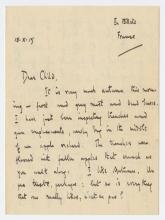 In Billets
France
18.X.15
Dear Child,
It is very much autumn this morn-
ing — frost and grey mist and dead leaves.
I have just been inspecting trenches and
gun emplacements, and by in the middle
of an apple orchard. The trenches were
floored with fallen apples that crunch as
you walk along. I like Autumn, the
perhaps; but so is everything
that one really likes, isn't it?